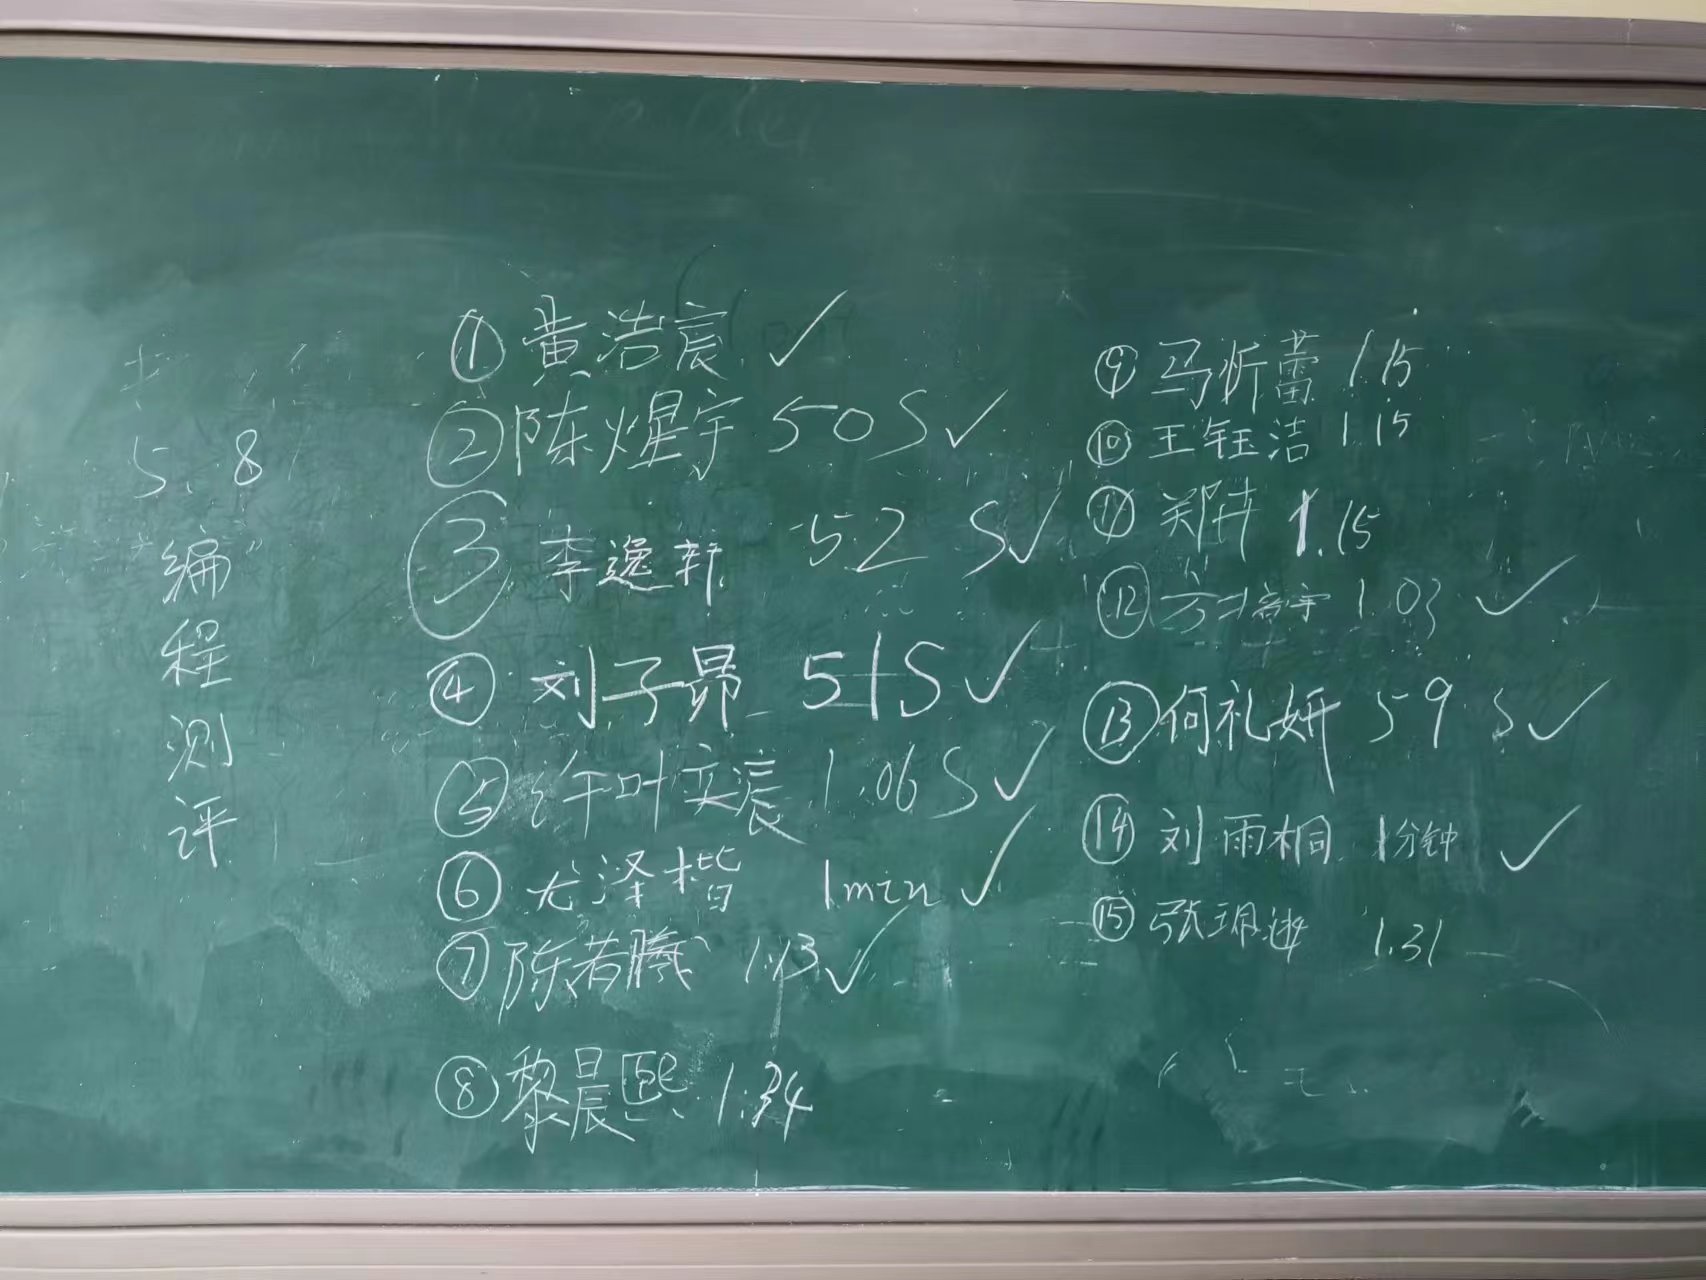 5.8
编程测评
① 黄浩宸 ✓
② 陈煋宇 50S ✓
③ 李逸轩 52 S ✓
④ 刘子昴 51S ✓
⑤ 许叶奕宸 1.06 S ✓
⑥ 尤泽楷 1min ✓
⑦ 陈若曦 1.13 ✓
⑧ 黎晨熙 1:34
⑨ 马忻蕾 1.15
⑩ 王钰洁 1.15
⑪ 郑卉 1.15
⑫ 方 宇 1.03 ✓
⑬ 何礼妍 59 S ✓
⑭ 刘雨桐 1分钟 ✓
⑮ 张 1.31